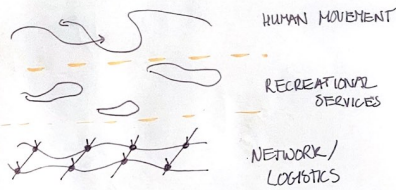 HUMAN MOVEMENT
RECREATIONAL
SERVICES
NETWORK/
LOGISTICS